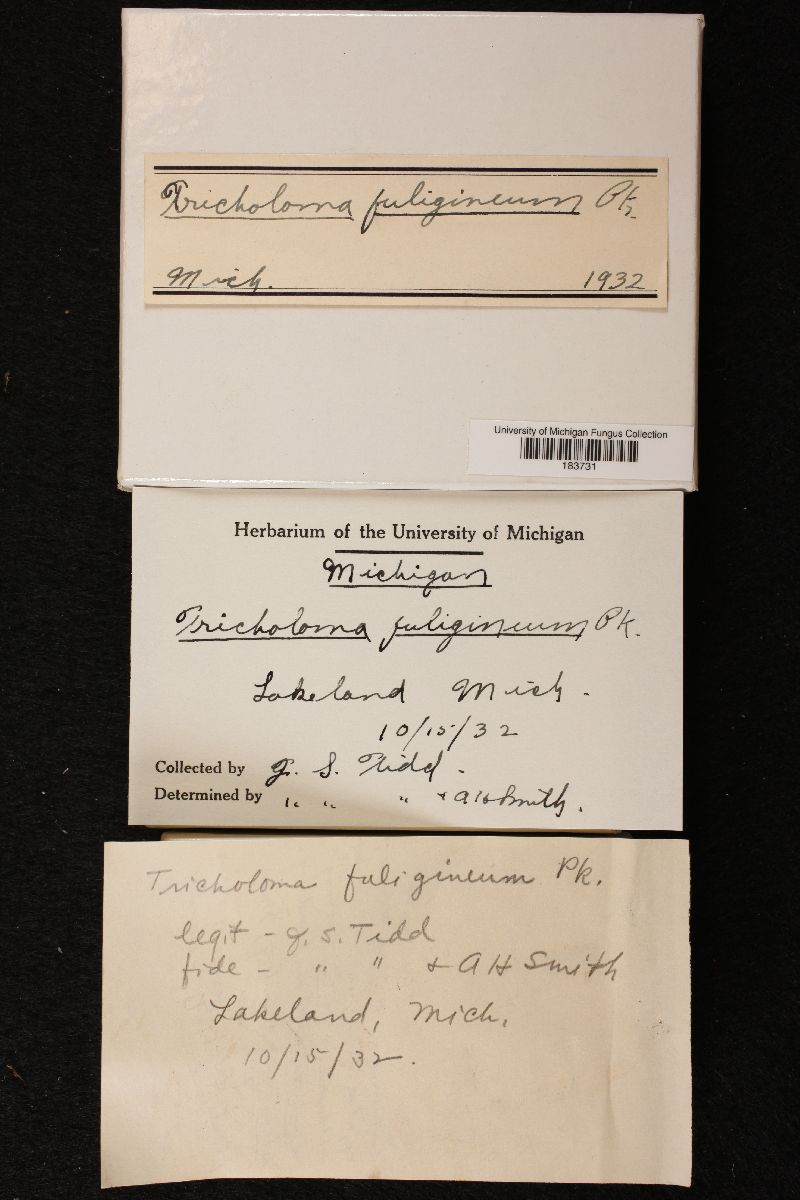 Tricholoma fuligineum Pk.
Mich. 1932.
University of Michigan Fungus Collection
183731
Herbarium of the University of Michigan
Michigan
Tricholoma fuligineum Pk.
Lakeland Mich.
10/15/32
Collected by J. S. Tidd.
Determined by " " " & AHSmith.
Tricholoma fuligineum Pk.
legit - J. S. Tidd
fide - " " & A H Smith
Lakeland, Mich.
10/15/32.